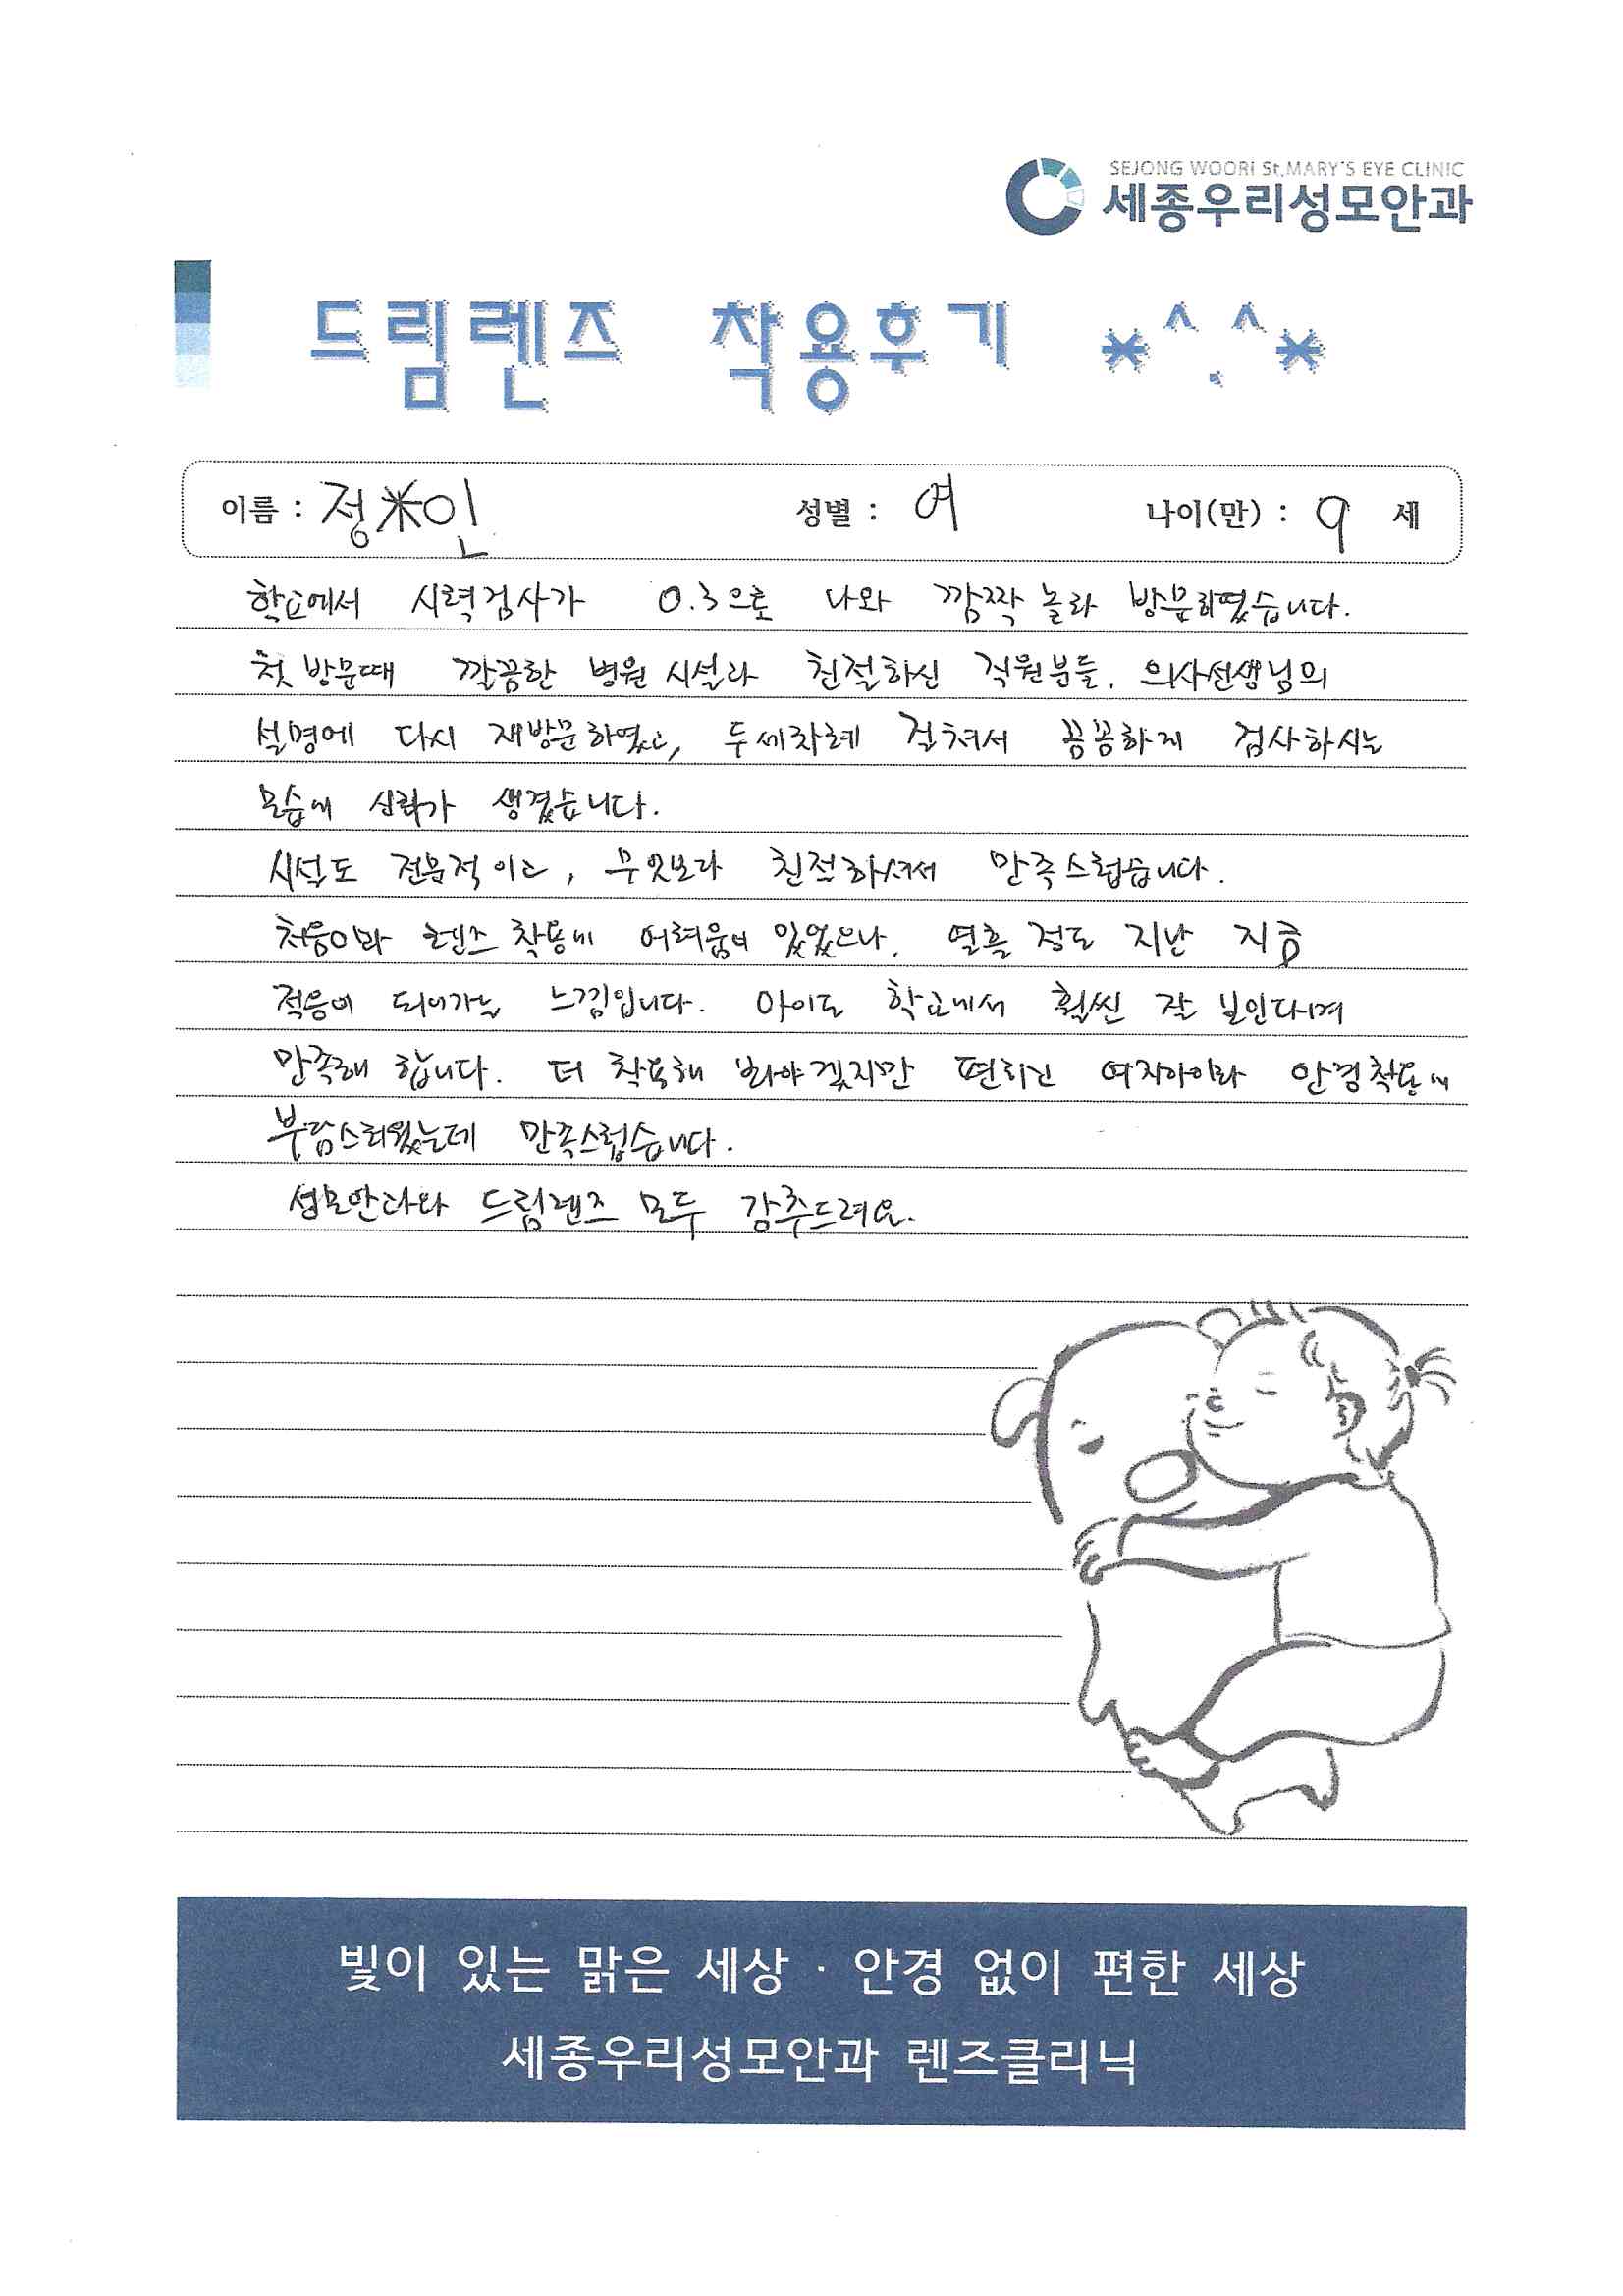 SEJONG WOORI St.MARY'S EYE CLINIC
세종우리성모안과
드림렌즈 착용후기 *^.^*
이름 : 정※인 성별 : 여 나이(만) : 9 세
학교에서 시력검사가 0.3으로 나와 깜짝 놀라 방문하였습니다.
첫 방문때 깔끔한 병원 시설과 친절하신 직원분들, 의사선생님의
설명에 다시 재방문하였고, 두세차례 걸쳐서 꼼꼼하게 검사하시는
모습에 신뢰가 생겼습니다.
시설도 전문적이고, 무엇보다 친절하셔서 만족스럽습니다.
처음이라 렌즈 착용에 어려움이 있었으나, 열흘 정도 지난 지금
적응이 되어가는 느낌입니다. 아이도 학교에서 훨씬 잘 보인다며
만족해 합니다. 더 착용해 봐야겠지만 여자아이라 안경착용에
부담스러웠는데 만족스럽습니다.
성모안과와 드림렌즈 모두 강추드려요.
빛이 있는 맑은 세상 · 안경 없이 편한 세상
세종우리성모안과 렌즈클리닉